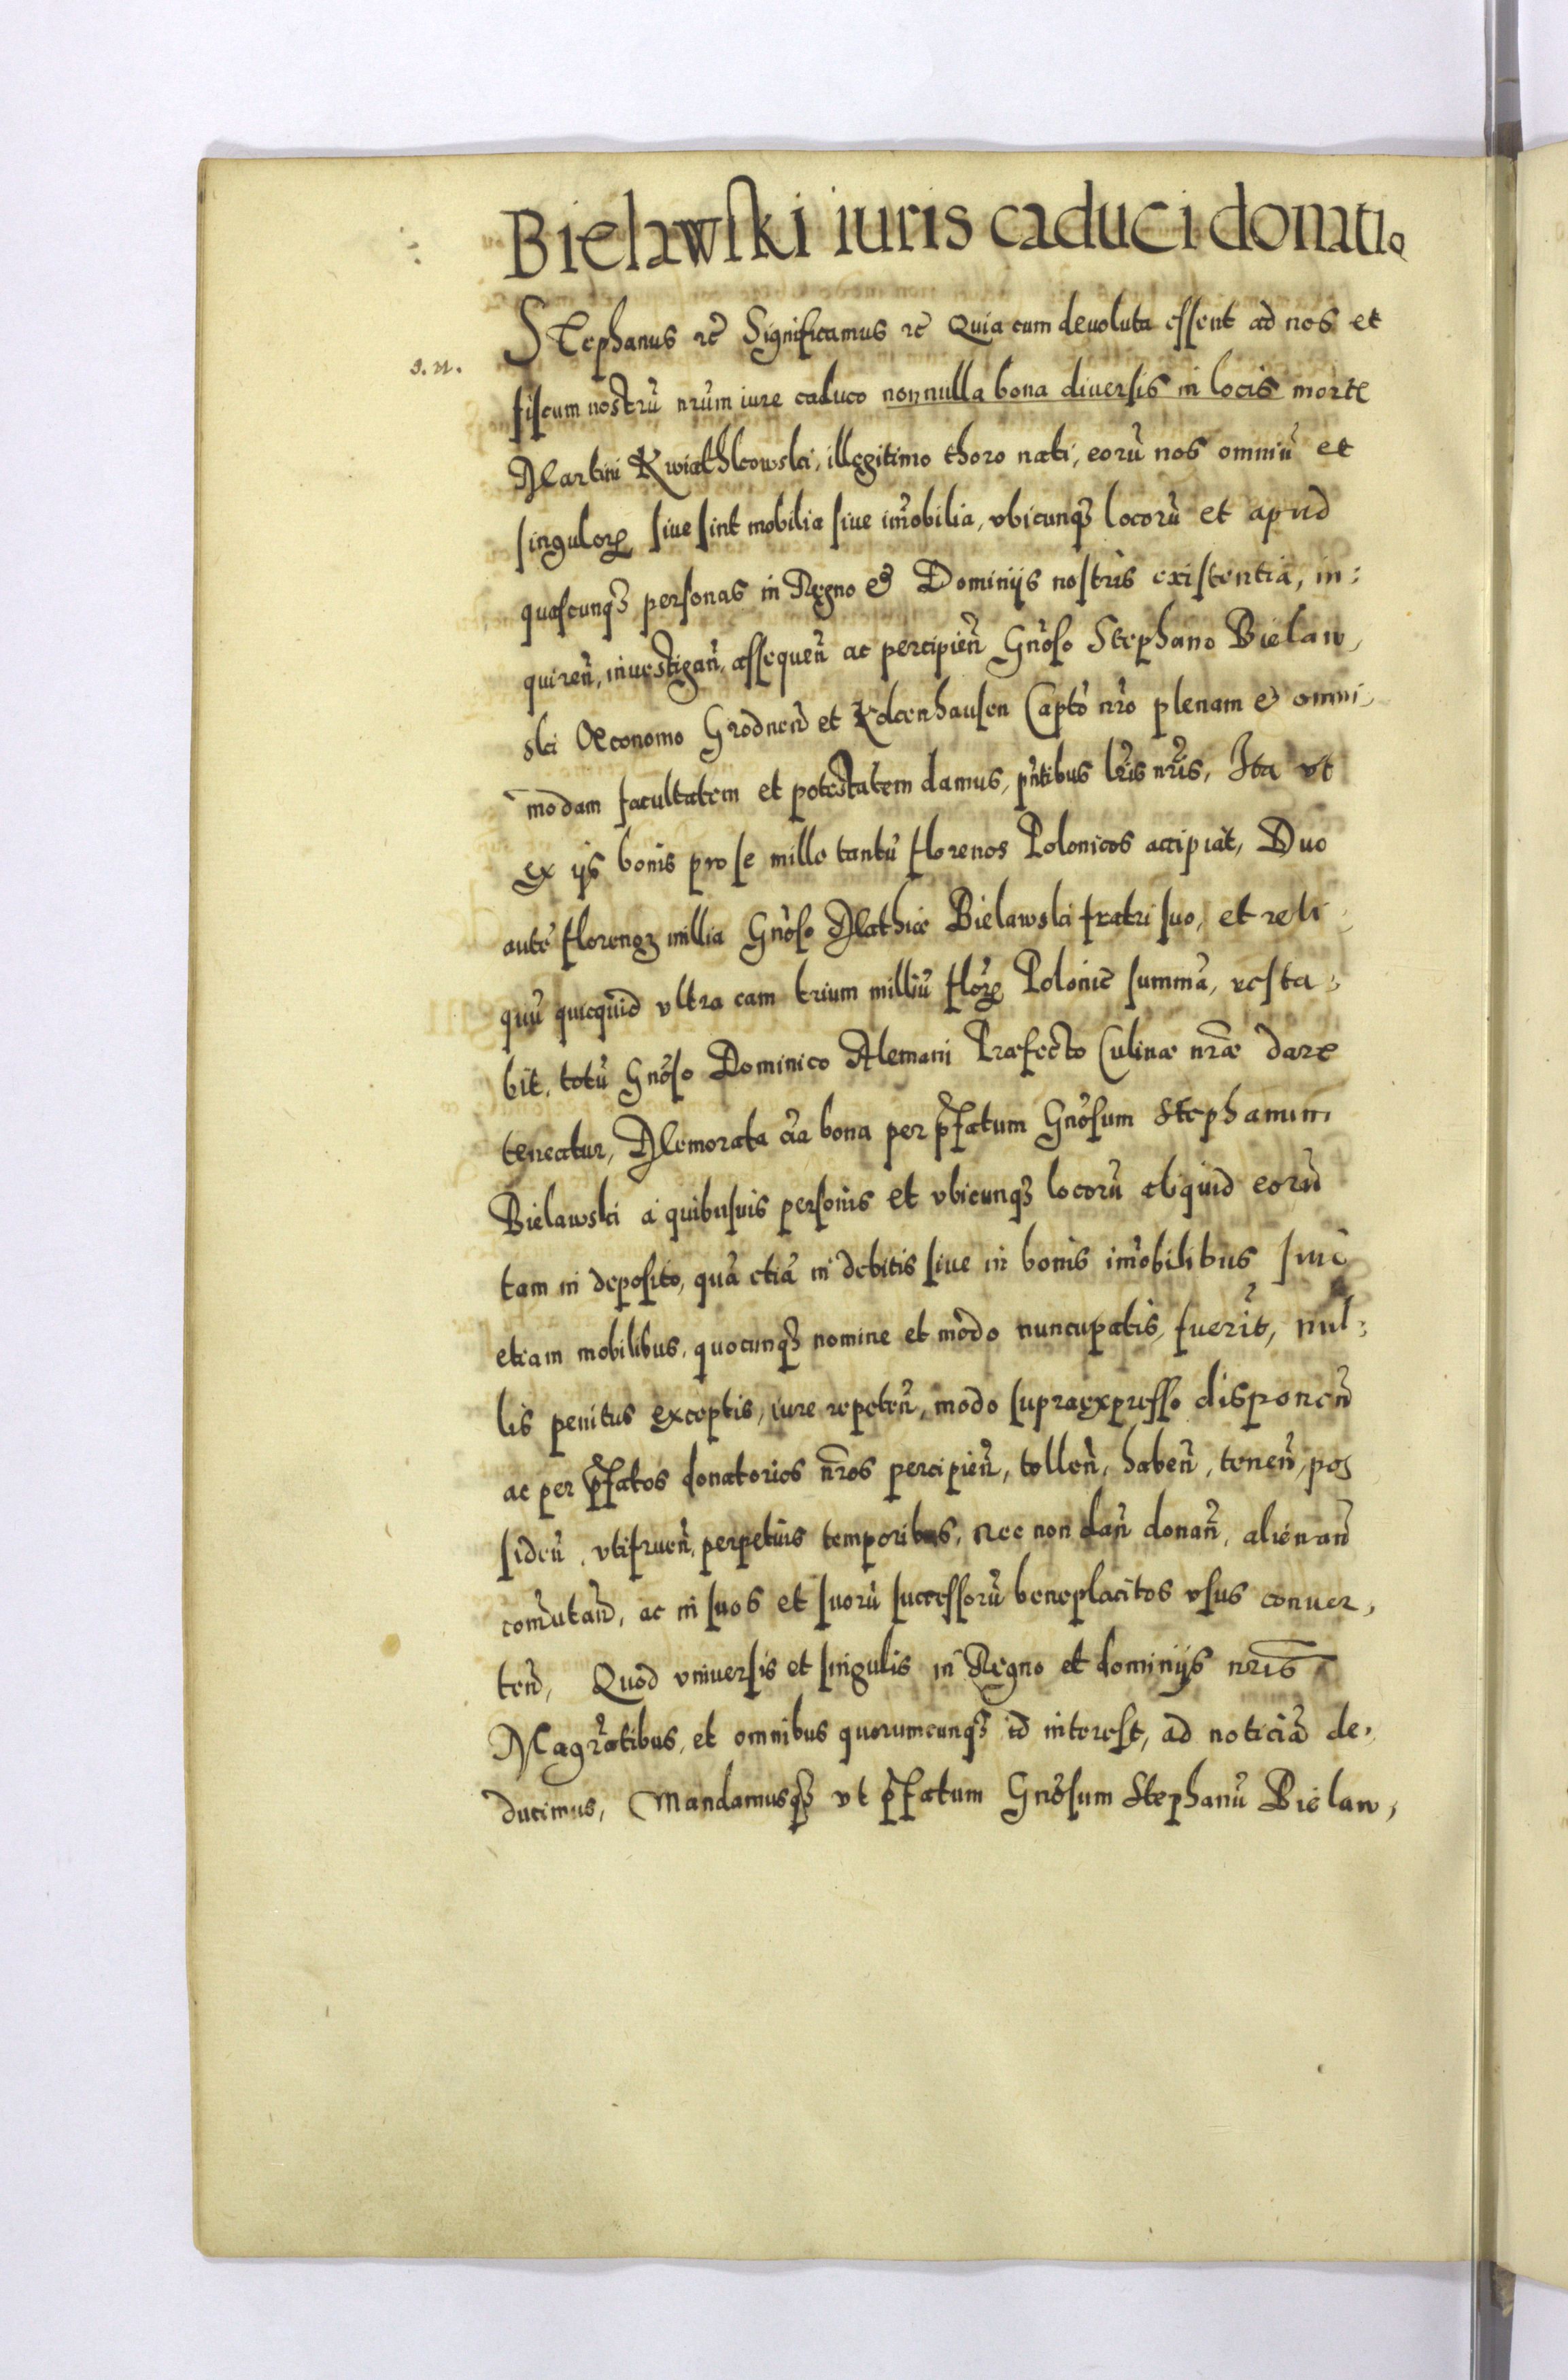 Bielawski iuris caduci donatio
Stephanus rc̃ Significamus rc̃ Quia cum devoluta essent ad nos et
s. n.
fiscum nostrũ nr̃um iure caduco nonnulla bona diversis in locis morte
Martini Kwiathkowski, illegitimo thoro nati, eorũ nos omniũ et
singulorꝝ sive sint mobilia sive im̃obilia, vbicunqꝫ locorũ et apud
quascunqꝫ personas in Regno & Dominijs nostris existentia, in:
quireñ, investigañ, assequeñ ac percipieñ Gn̄oso Stephano Bielaw,
ski Oeconomo Grodneñ et Kokenhausen Captõ nr̃o plenam & omni,
modam facultatem et potestatem damus, pñtibus lr̃is nr̃is, Ita vt
ex ijs bonis pro se mille tantũ florenos Polonicos accipiat, Duo
autẽ florenoꝝ millia Gn̄oso Mathiæ Bielawski fratri suo, et reli,
quũ quicquid vltra eam trium milliũ florꝝ Polonic̃ summã, resta:
bit, totũ Gn̄oso Dominico Alemani Præfecto Culinæ nr̃æ dare
teneatur, Memorata õia bona per p̃fatum Gn̄osum Stephanum
Bielawski a quibusuis personis et vbicunqꝫ locorũ aliquid eorũ
tam in deposito, quã etiã in debitis sive in bonis im̃obilibus sive
etiam mobilibus, quocunqꝫ nomine et modo nuncupatis, fuerit, nul:
lis penitus exceptis, iure repeteñ, modo supraexpresso disponeñ
ac per p̃fatos donatorios nr̃os percipieñ, tolleñ, habeñ, teneñ, pos
sideñ, vtifrueñ, perpetuis temporibus, nec non dañ donañ, alienañ
com̃utañ, ac in suos et suorũ successorũ beneplacitos vsus conver,
teñ, Quod vniversis et singulis in Regno et dominijs nr̃is
Magr̃atibus, et omnibus quorumcunqꝫ id interest, ad noticiã de,
ducimus, Mandamusqꝫ vt p̃fatum Gn̄osum Stephanũ Bielaw,